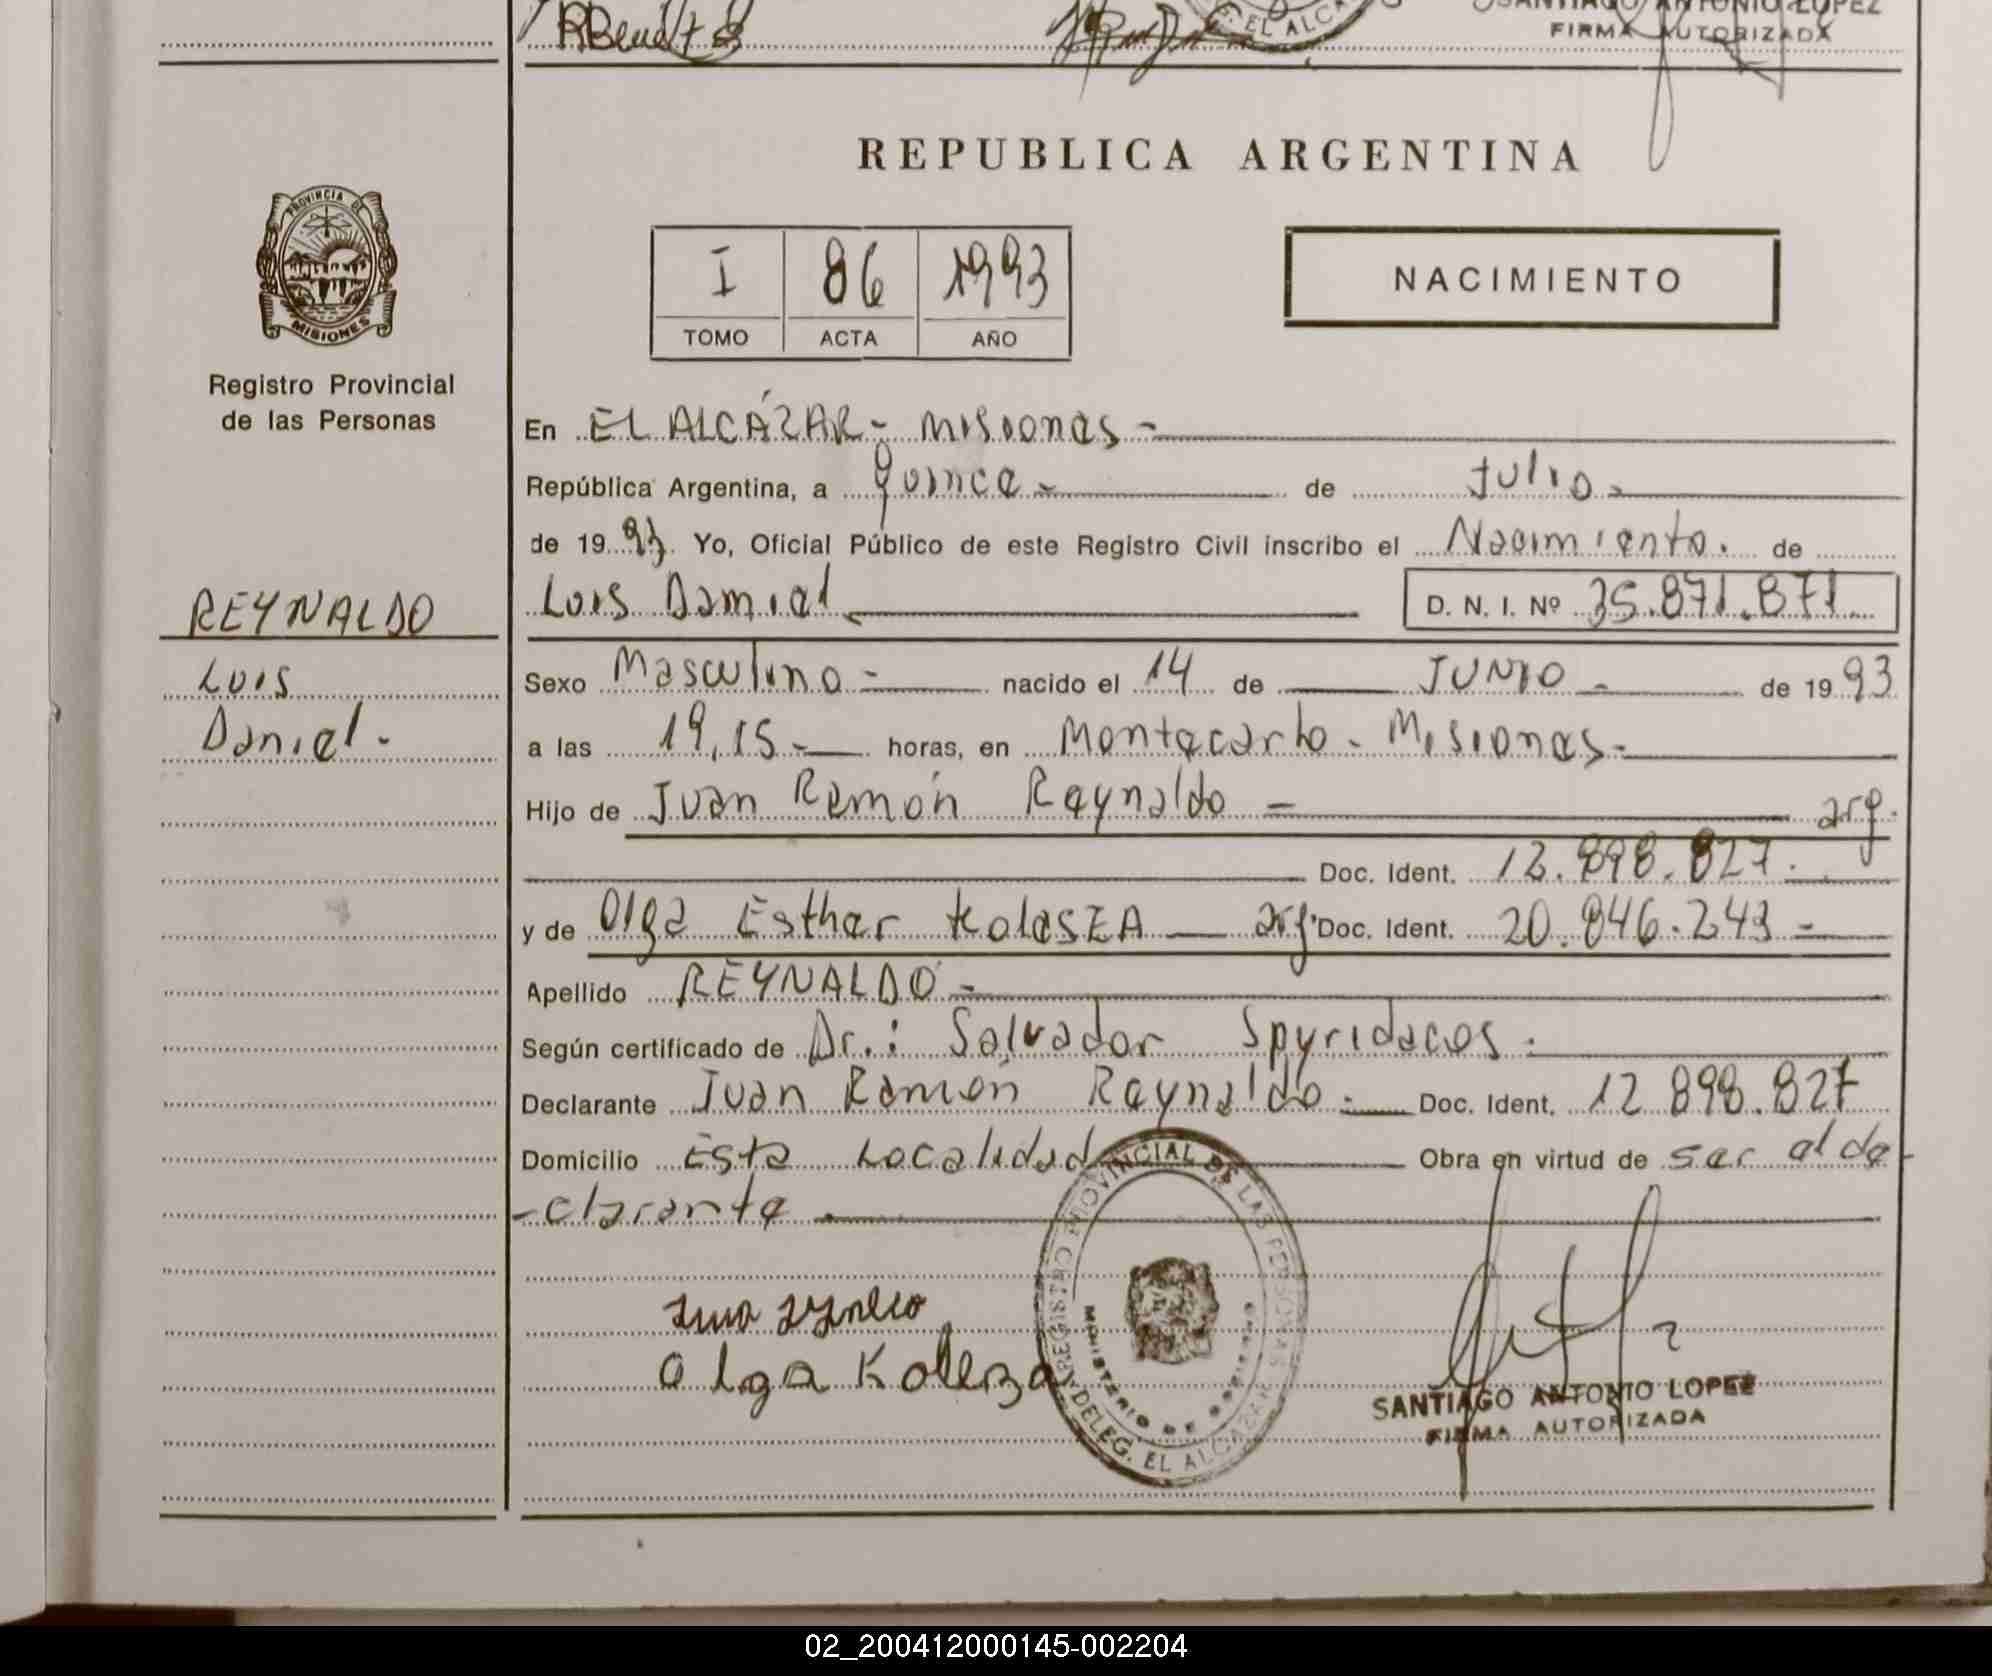 RBenítez
SANTIAGO ANTONIO LOPEZ
FIRMA AUTORIZADA
EL ALCA
REPUBLICA ARGENTINA
PROVINCIA DE
MISIONES
Registro Provincial
de las Personas
I 86 1993
TOMO ACTA AÑO
NACIMIENTO
En EL ALCÁZAR - Misiones -
República Argentina, a quince - de Julio -
de 1993. Yo, Oficial Público de este Registro Civil inscribo el Nacimiento. de
REYNALDO
Luis Daniel D. N. I. Nº 35.871.871
Luis
Daniel.-
Sexo Masculino - nacido el 14 de JUNIO - de 1993
a las 19,15 - horas, en Montecarlo - Misiones -
Hijo de Juan Ramón Reynaldo - arg.
Doc. Ident. 12.898.827.
y de Olga Esther KolesZA arg. Doc. Ident. 20.846.243 -
Apellido REYNALDO -
Según certificado de Dr.: Salvador Spyridacos.
Declarante Juan Ramón Reynaldo. Doc. Ident. 12 898.827
Domicilio Esta Localidad Obra en virtud de ser el de-
-clarante.
Olga Koleza
REGISTRO PROVINCIAL DE LAS PERSONAS
MINISTERIO DE GOBIERNO
DELEG. EL ALCAZAR
SANTIAGO ANTONIO LOPEZ
FIRMA AUTORIZADA
02_200412000145-002204